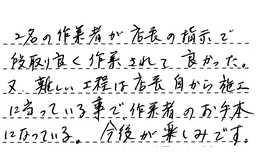 2名の作業者が店長の指示で
段取り良く作業されて良かった。
又、難しい工程は店長自から施工
に当っている事で、作業者のお手本
になっている。今後が楽しみです。